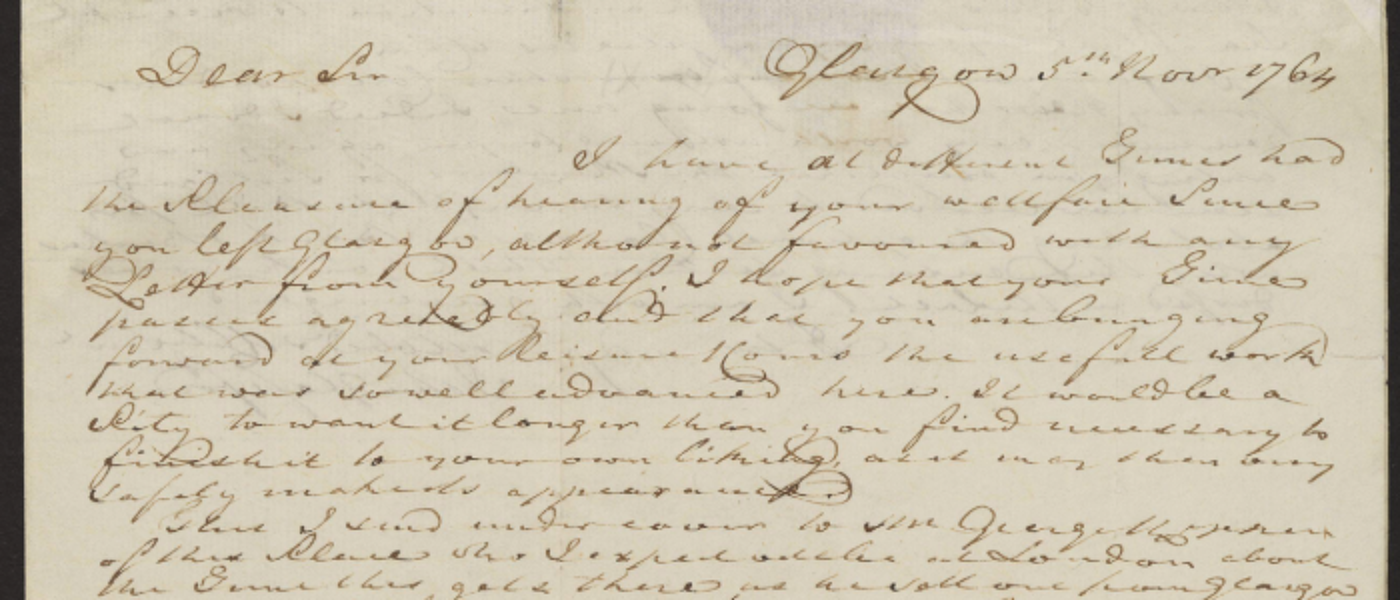 Dear Sir Glasgow 5th Novr 1764
I have at different Times had
the Pleasure of hearing of your wellfair Since
you left Glasgow, altho not favoured with any
Letter from yourself. I hope that your Time
passes agreeably and that you are bringing
forward at your Leisure Hours the usefull work
that was so well advanced here. It would be a
Pity to want it longer than you find necessary to
finish it to your own liking, as it may then very
safely make its appearance
This I send under cover to Mr George
of this Place who I expect will be at London about
the Time this gets there as he sett out from Glasgow